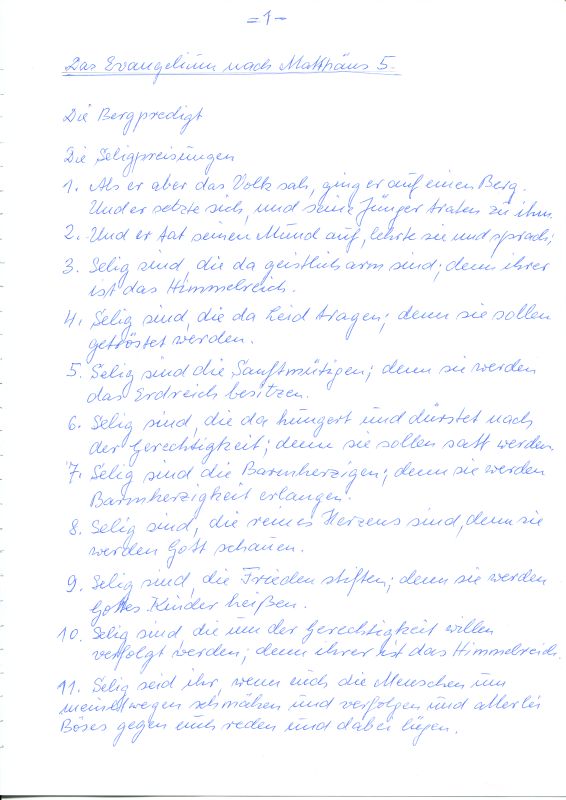 =1-
Das Evangelium nach Matthäus 5.
Die Bergpredigt
Die Seligpreisungen
1. Als er aber das Volk sah, ging er auf einen Berg.
Und er setzte sich, und seine Jünger traten zu ihm.
2. Und er tat seinen Mund auf, lehrte sie und sprach;
3. Selig sind, die da geistlich arm sind; denn ihrer
ist das Himmelreich.
4. Selig sind, die da Leid tragen; denn sie sollen
getröstet werden.
5. Selig sind die Sanftmütigen; denn sie werden
das Erdreich besitzen.
6. Selig sind, die da hungert und dürstet nach
der Gerechtigkeit; denn sie sollen satt werden.
7. Selig sind die Barmherzigen; denn sie werden
Barmherzigkeit erlangen.
8. Selig sind, die reines Herzens sind, denn sie
werden Gott schauen.
9. Selig sind, die Frieden stiften; denn sie werden
Gottes Kinder heißen.
10. Selig sind, die um der Gerechtigkeit willen
verfolgt werden; denn ihrer ist das Himmelreich.
11. Selig seid ihr, wenn euch die Menschen um
meinetwegen schmähen und verfolgen und allerlei
Böses gegen euch reden und dabei lügen.